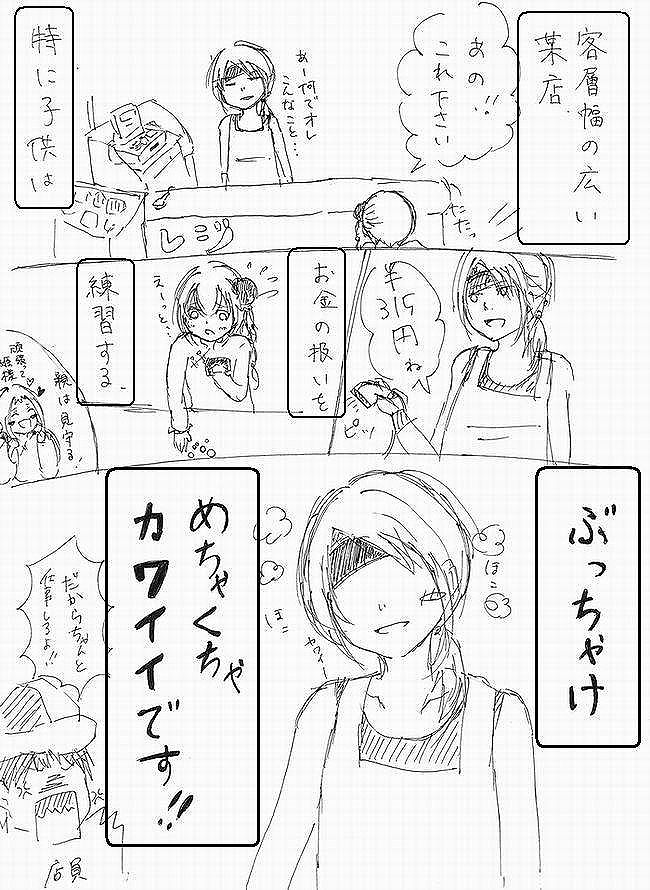 客層幅の広い
菓店
あの!!
これ下さい
あー何でオレ
こんなこと…
特に子供は
レジ
たたっ
半
315円ね
ピッ
お金の扱いを
えーっと…
練習する
親は見守る!
頑張って
ぶっちゃけ
ほこ
ほこ
めちゃくちゃ
カワイイです!!
だからちゃんと
仕事しろよ!!
店員